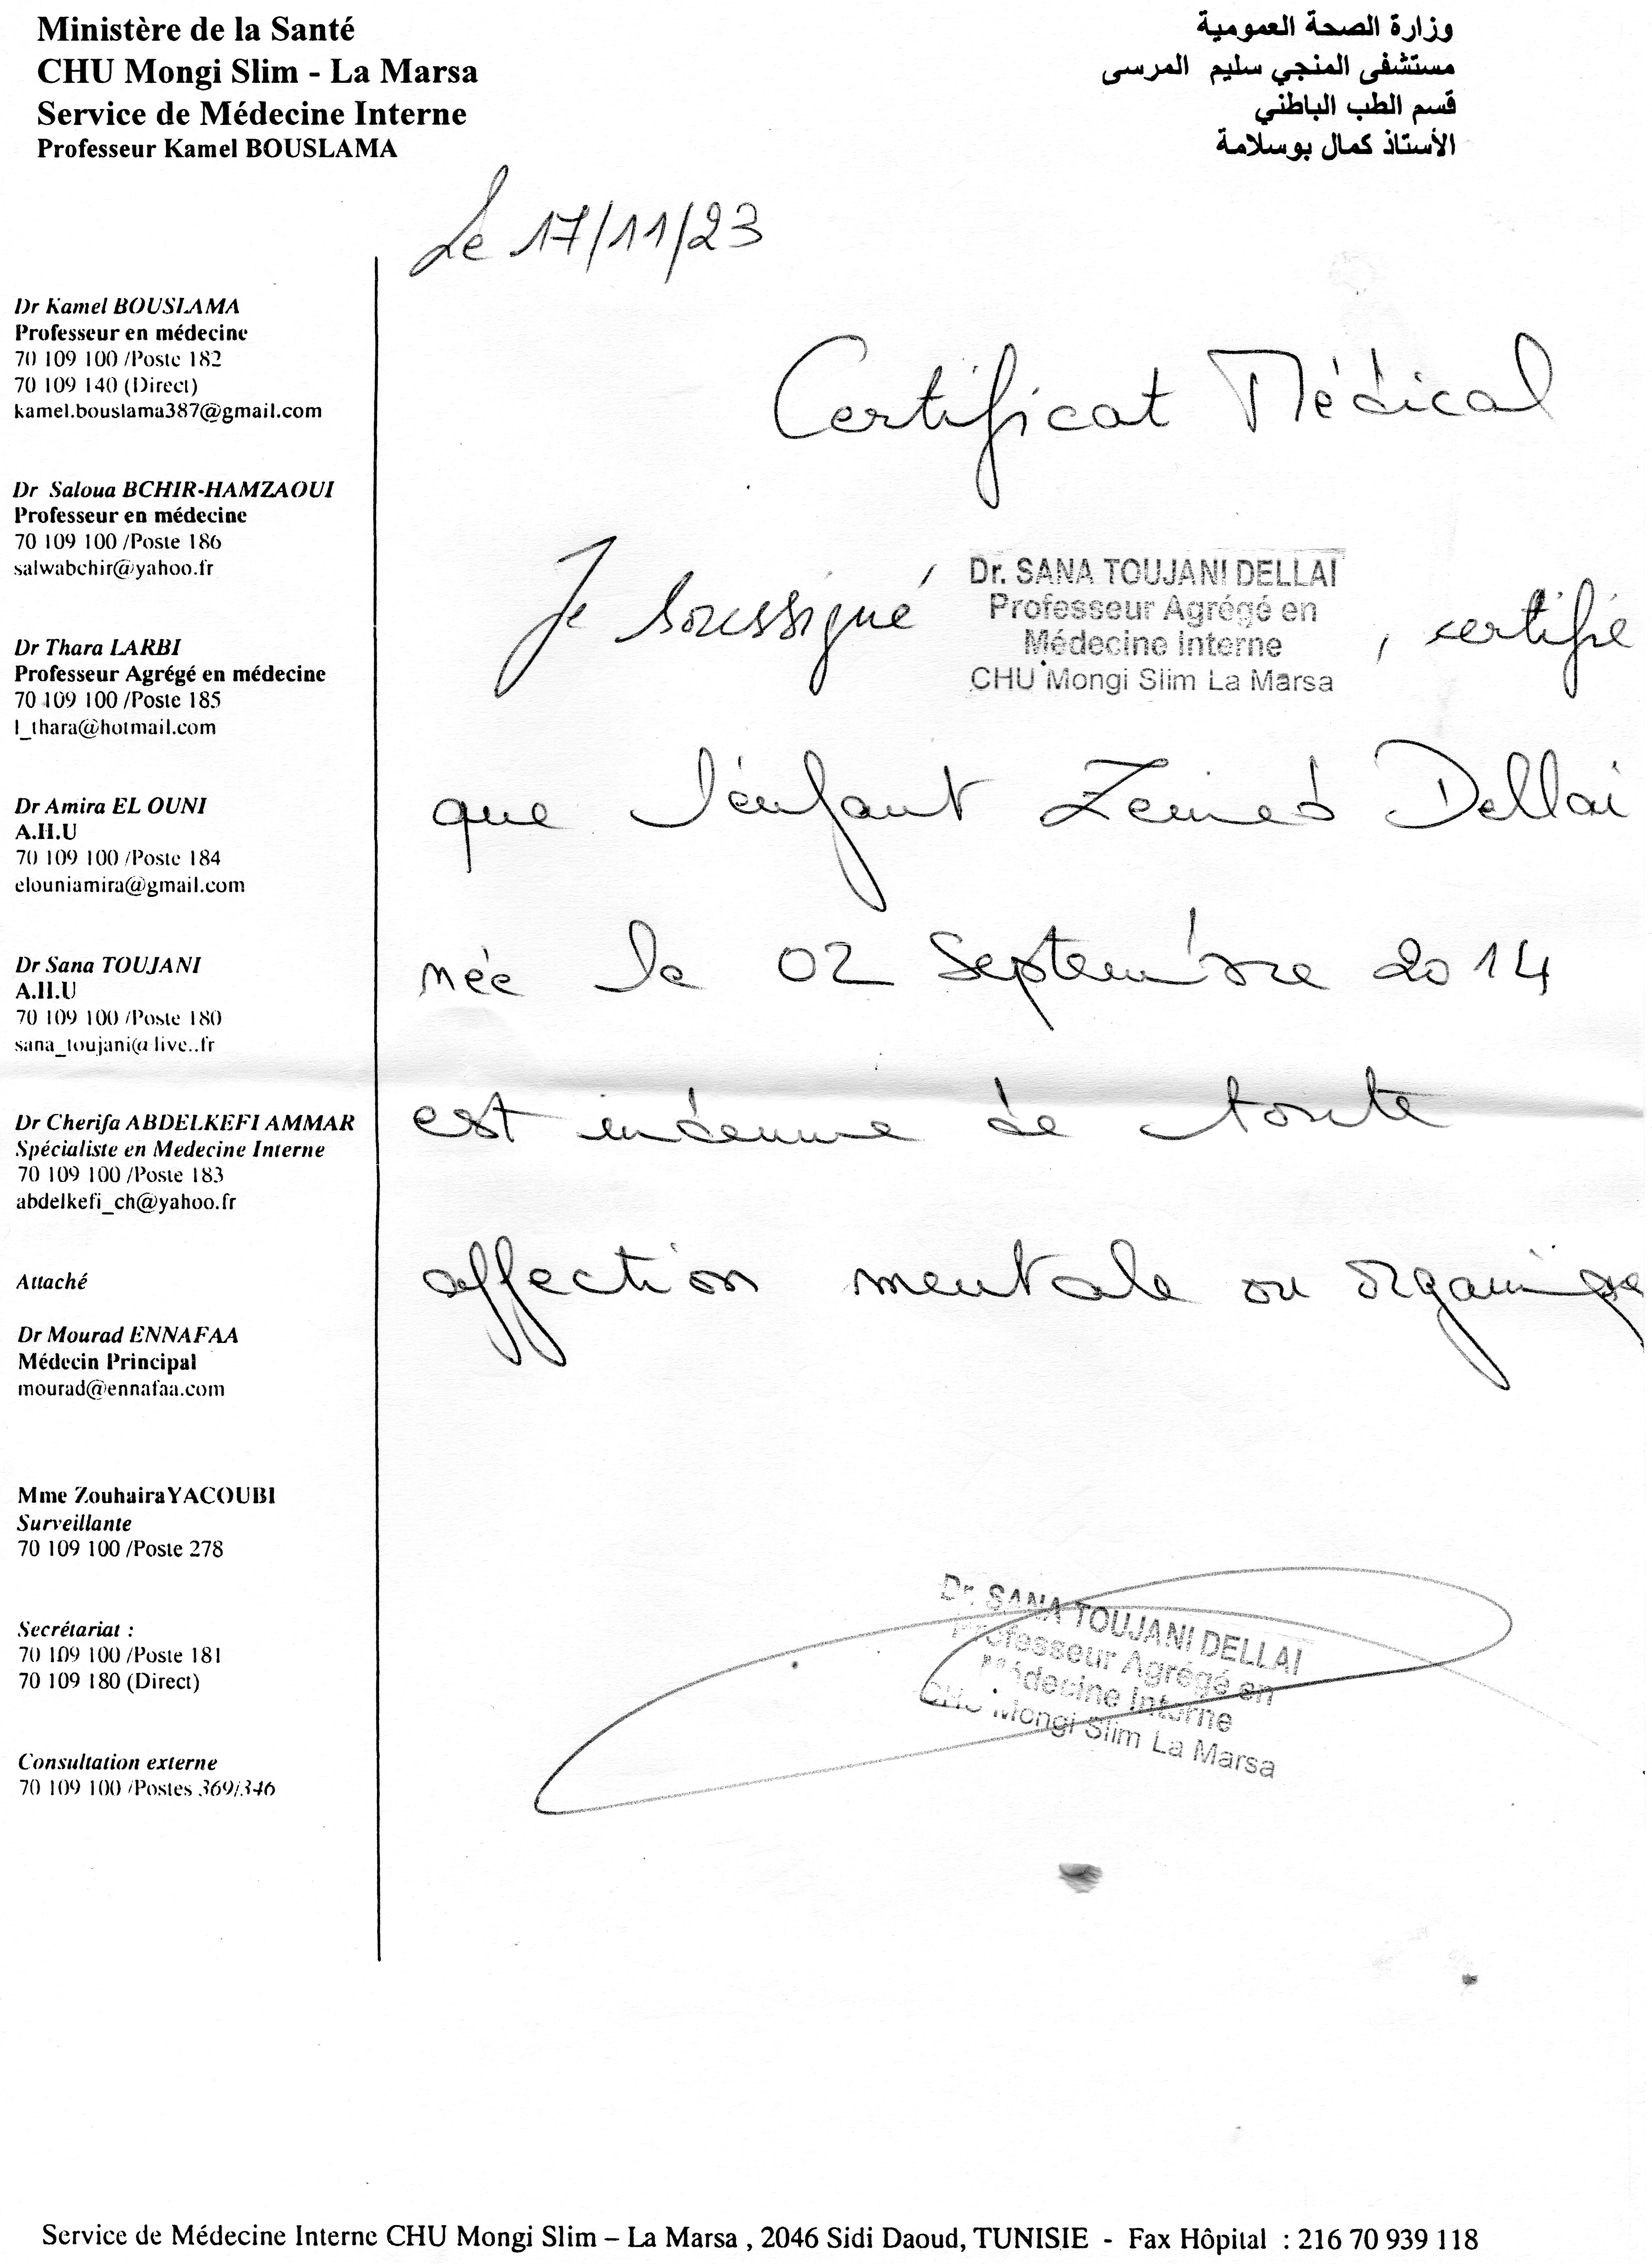 Ministère de la Santé
CHU Mongi Slim - La Marsa
Service de Médecine Interne
Professeur Kamel BOUSLAMA
وزارة الصحة العمومية
مستشفى المنجي سليم المرسى
قسم الطب الباطني
الأستاذ كمال بوسلامة
Le 17/11/23
Dr Kamel BOUSLAMA
Professeur en médecine
70 109 100 /Poste 182
70 109 140 (Direct)
kamel.bouslama387@gmail.com
Dr Saloua BCHIR-HAMZAOUI
Professeur en médecine
70 109 100 /Poste 186
salwabchir@yahoo.fr
Dr Thara LARBI
Professeur Agrégé en médecine
70 109 100 /Poste 185
l_thara@hotmail.com
Dr Amira EL OUNI
A.H.U
70 109 100 /Poste 184
elouniamira@gmail.com
Dr Sana TOUJANI
A.H.U
70 109 100 /Poste 180
sana_toujani@live..fr
Dr Cherifa ABDELKEFI AMMAR
Spécialiste en Medecine Interne
70 109 100 /Poste 183
abdelkefi_ch@yahoo.fr
Attaché
Dr Mourad ENNAFAA
Médecin Principal
mourad@ennafaa.com
Mme Zouhaira YACOUBI
Surveillante
70 109 100 /Poste 278
Secrétariat :
70 109 100 /Poste 181
70 109 180 (Direct)
Consultation externe
70 109 100 /Postes 369/346
Certificat Médical
Je soussigné, certifie
Dr. SANA TOUJANI DELLAI
Professeur Agrégé en
Médecine Interne
CHU Mongi Slim La Marsa
que l'enfant Zeineb Dellai
née le 02 Septembre 2014
est indemne de toute
affection mentale ou organique
Dr. SANA TOUJANI DELLAI
Professeur Agrégé en
Médecine Interne
CHU Mongi Slim La Marsa
Service de Médecine Interne CHU Mongi Slim – La Marsa , 2046 Sidi Daoud, TUNISIE - Fax Hôpital : 216 70 939 118